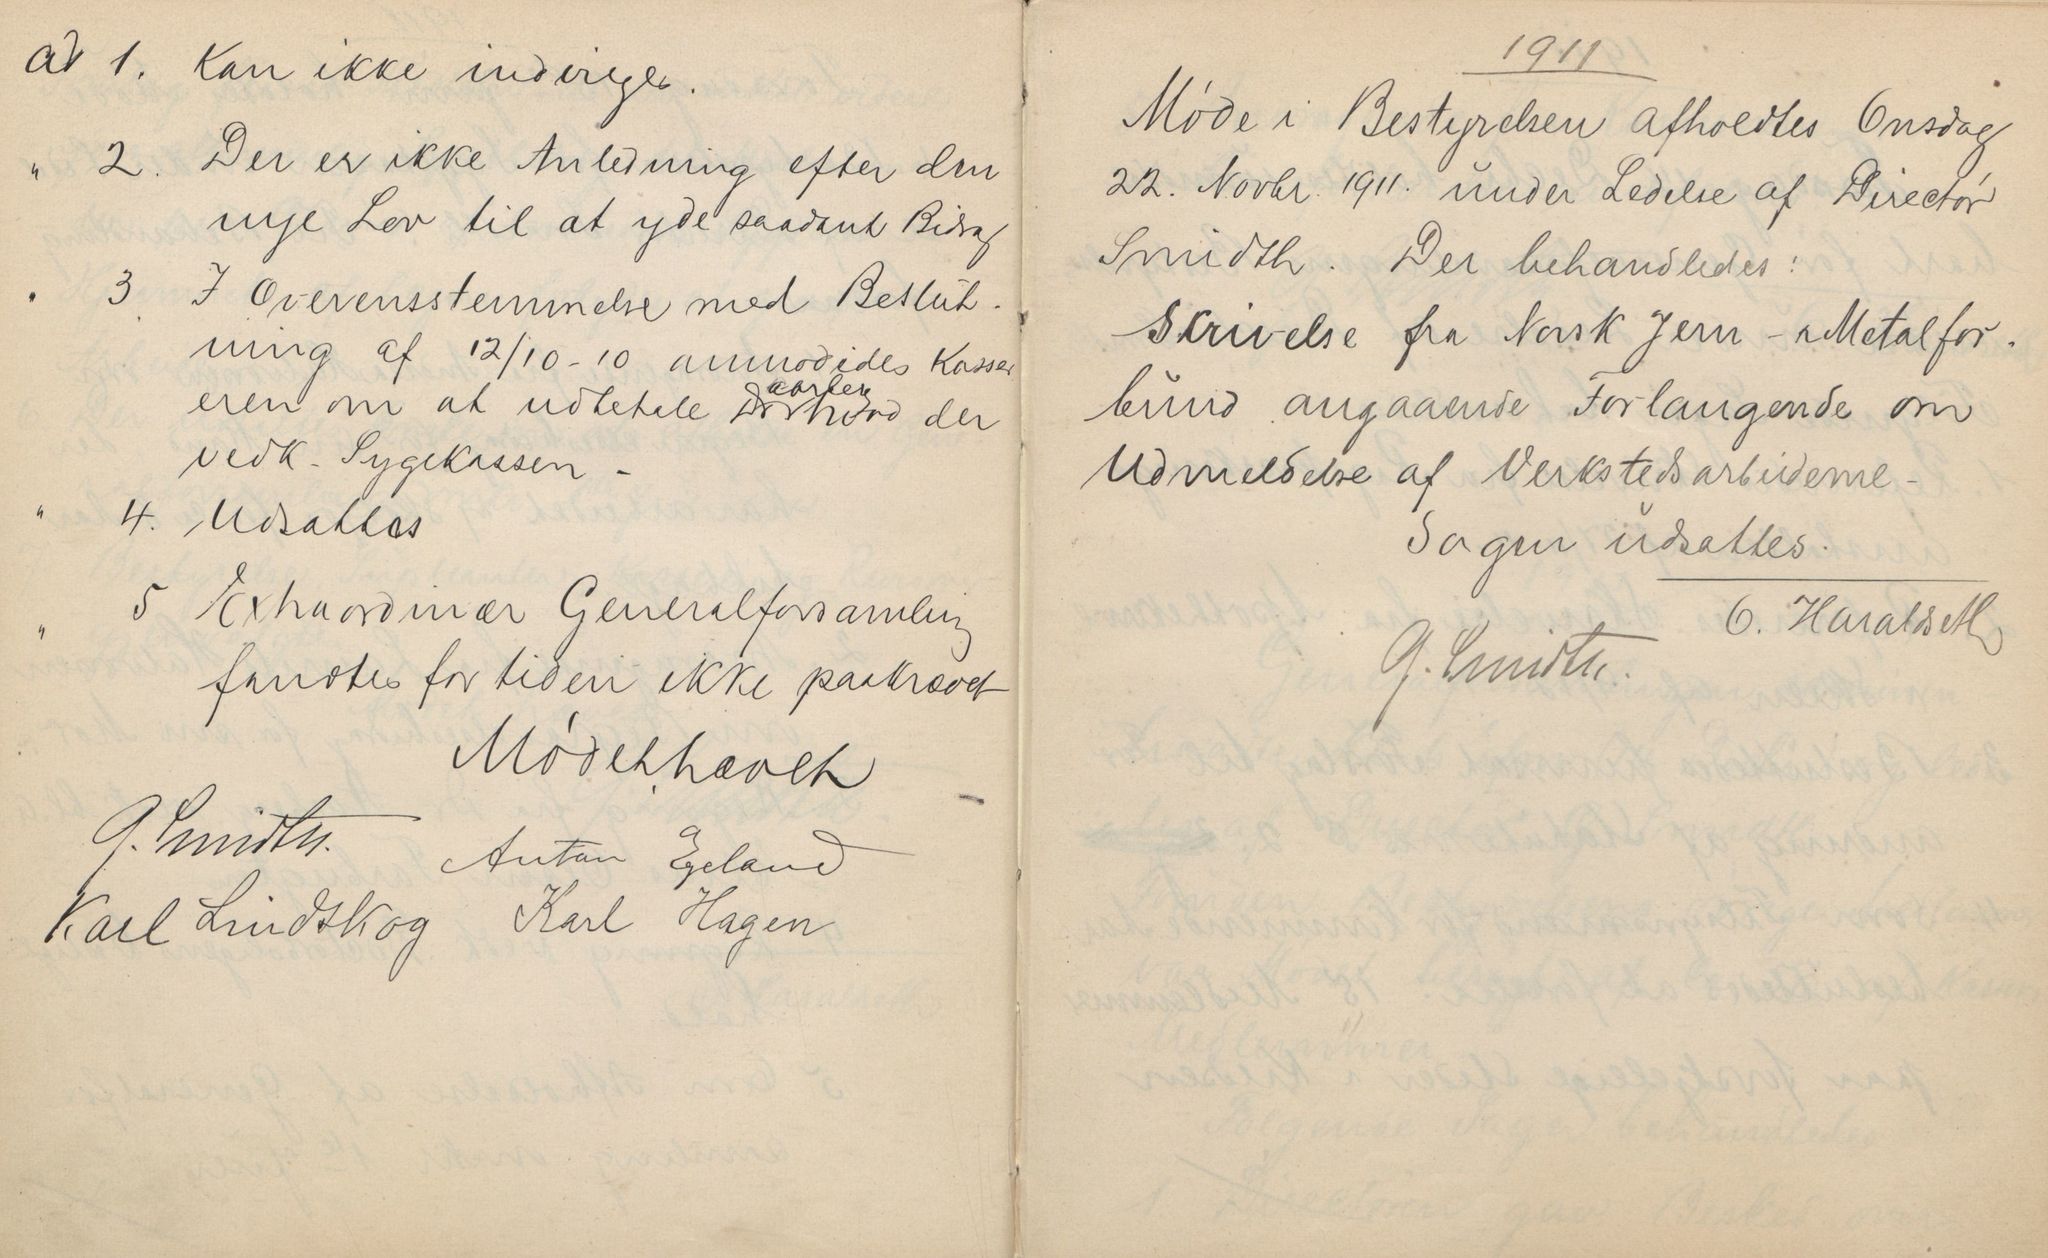 ad 1. Kan ikke indvilges.
" 2. Der er ikke Anledning efter den
nye Lov til at yde saadant Bidrag
" 3. I Overensstemmelse med Beslut-
ning af 12/10-10 anmodedes Kasser
eren om at udbetale aarlig der
vedk. Sygekassen -
" 4. Udsattes
" 5 Extraordinær Generalforsamling
fandtes for tiden ikke paakrævet
Mödet hævet
G. Smidth. Anton Egeland
Karl Lindskog Karl Hagen
1911
Möde i Bestyrelsen afholdtes Onsdag
22. Novbr. 1911. under Ledelse af Directör
Smidth. Der behandledes:
Skrivelse fra Norsk Jern- & Metalfor-
bund angaaende Forlangende om
Udmeldelse af Verkstedsarbeiderne -
Sagen udsattes.
O. Haraldseth
G. Smidth.